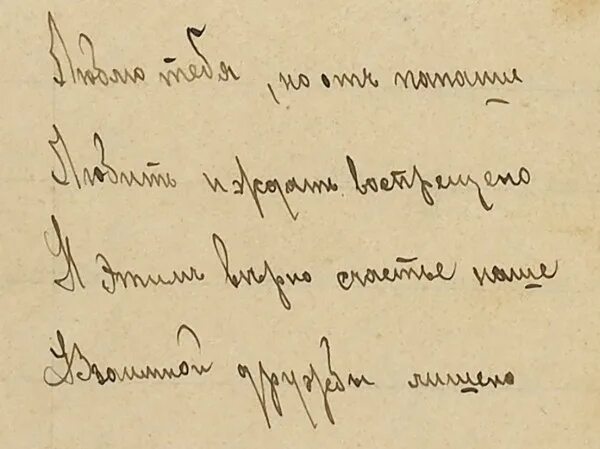 Люблю тебя, но отъ папаши
Любить и ждать воспрещено
И этимъ вѣрно счастье наше
Взаимной дружбы лишено